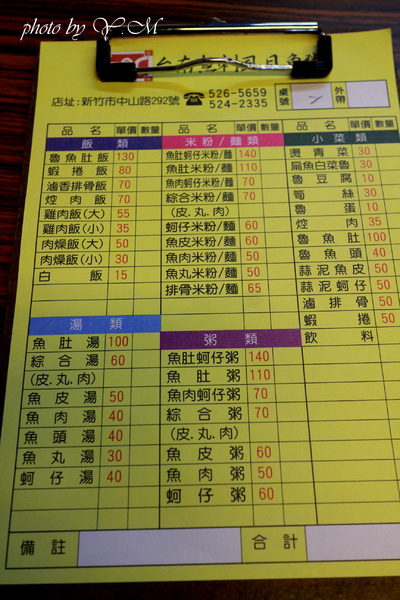 photo by Y.M
店址:新竹市中山路292號 ☎ 526-5659
524-2335
桌號
外帶
品名 單價 數量 品名 單價 數量 品名 單價 數量
飯類
魯魚肚飯 130
蝦捲飯 80
滷香排骨飯 70
焢肉飯 70
雞肉飯(大) 55
雞肉飯(小) 35
肉燥飯(大) 50
肉燥飯(小) 30
白飯 15
湯類
魚肚湯 100
綜合湯 60
(皮.丸.肉)
魚皮湯 50
魚肉湯 40
魚頭湯 40
魚丸湯 30
蚵仔湯 40
米粉/麵類
魚肚蚵仔米粉/麵 140
魚肚米粉/麵 110
魚肉蚵仔米粉/麵 70
綜合米粉/麵 70
(皮.丸.肉)
蚵仔米粉/麵 60
魚皮米粉/麵 60
魚肉米粉/麵 50
魚丸米粉/麵 50
排骨米粉/麵 65
粥類
魚肚蚵仔粥 140
魚肚粥 110
魚肉蚵仔粥 70
綜合粥 70
(皮.丸.肉)
魚皮粥 60
魚肉粥 50
蚵仔粥 60
小菜類
燙青菜 30
扁魚白菜魯 30
魯豆腐 10
筍絲 30
魯蛋 10
焢肉 35
魯魚肚 100
魯魚頭 40
蒜泥魚皮 50
蒜泥蚵仔 50
滷排骨 50
蝦捲 50
飲料
備註
合計